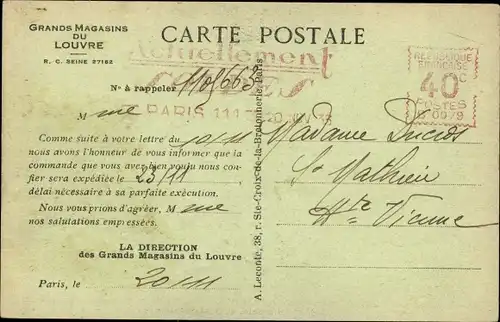 GRANDS MAGASINS
DU
LOUVRE
R. C. SEINE 27162
CARTE POSTALE
Actuellement
PARIS 111
RÉPUBLIQUE
FRANÇAISE
40c
POSTES
0979
No à rappeler 1101663
Mme
Comme suite à votre lettre du 10/11
nous avons l'honneur de vous informer que la
commande que vous avez bien voulu nous con-
fier sera expédiée le 23/11
délai nécessaire à sa parfaite exécution.
Nous vous prions d'agréer, Mme
nos salutations empressées.
LA DIRECTION
des Grands Magasins du Louvre
Paris, le 20/11
A. Leconte, 38, r. Ste-Croix-de-la-Bretonnerie, Paris
Madame Ducros
St Mathieu
Hte Vienne